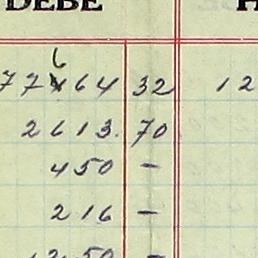 DEBE H
6
77464 32 12
2613. 70
450 -
216 -
1250 -